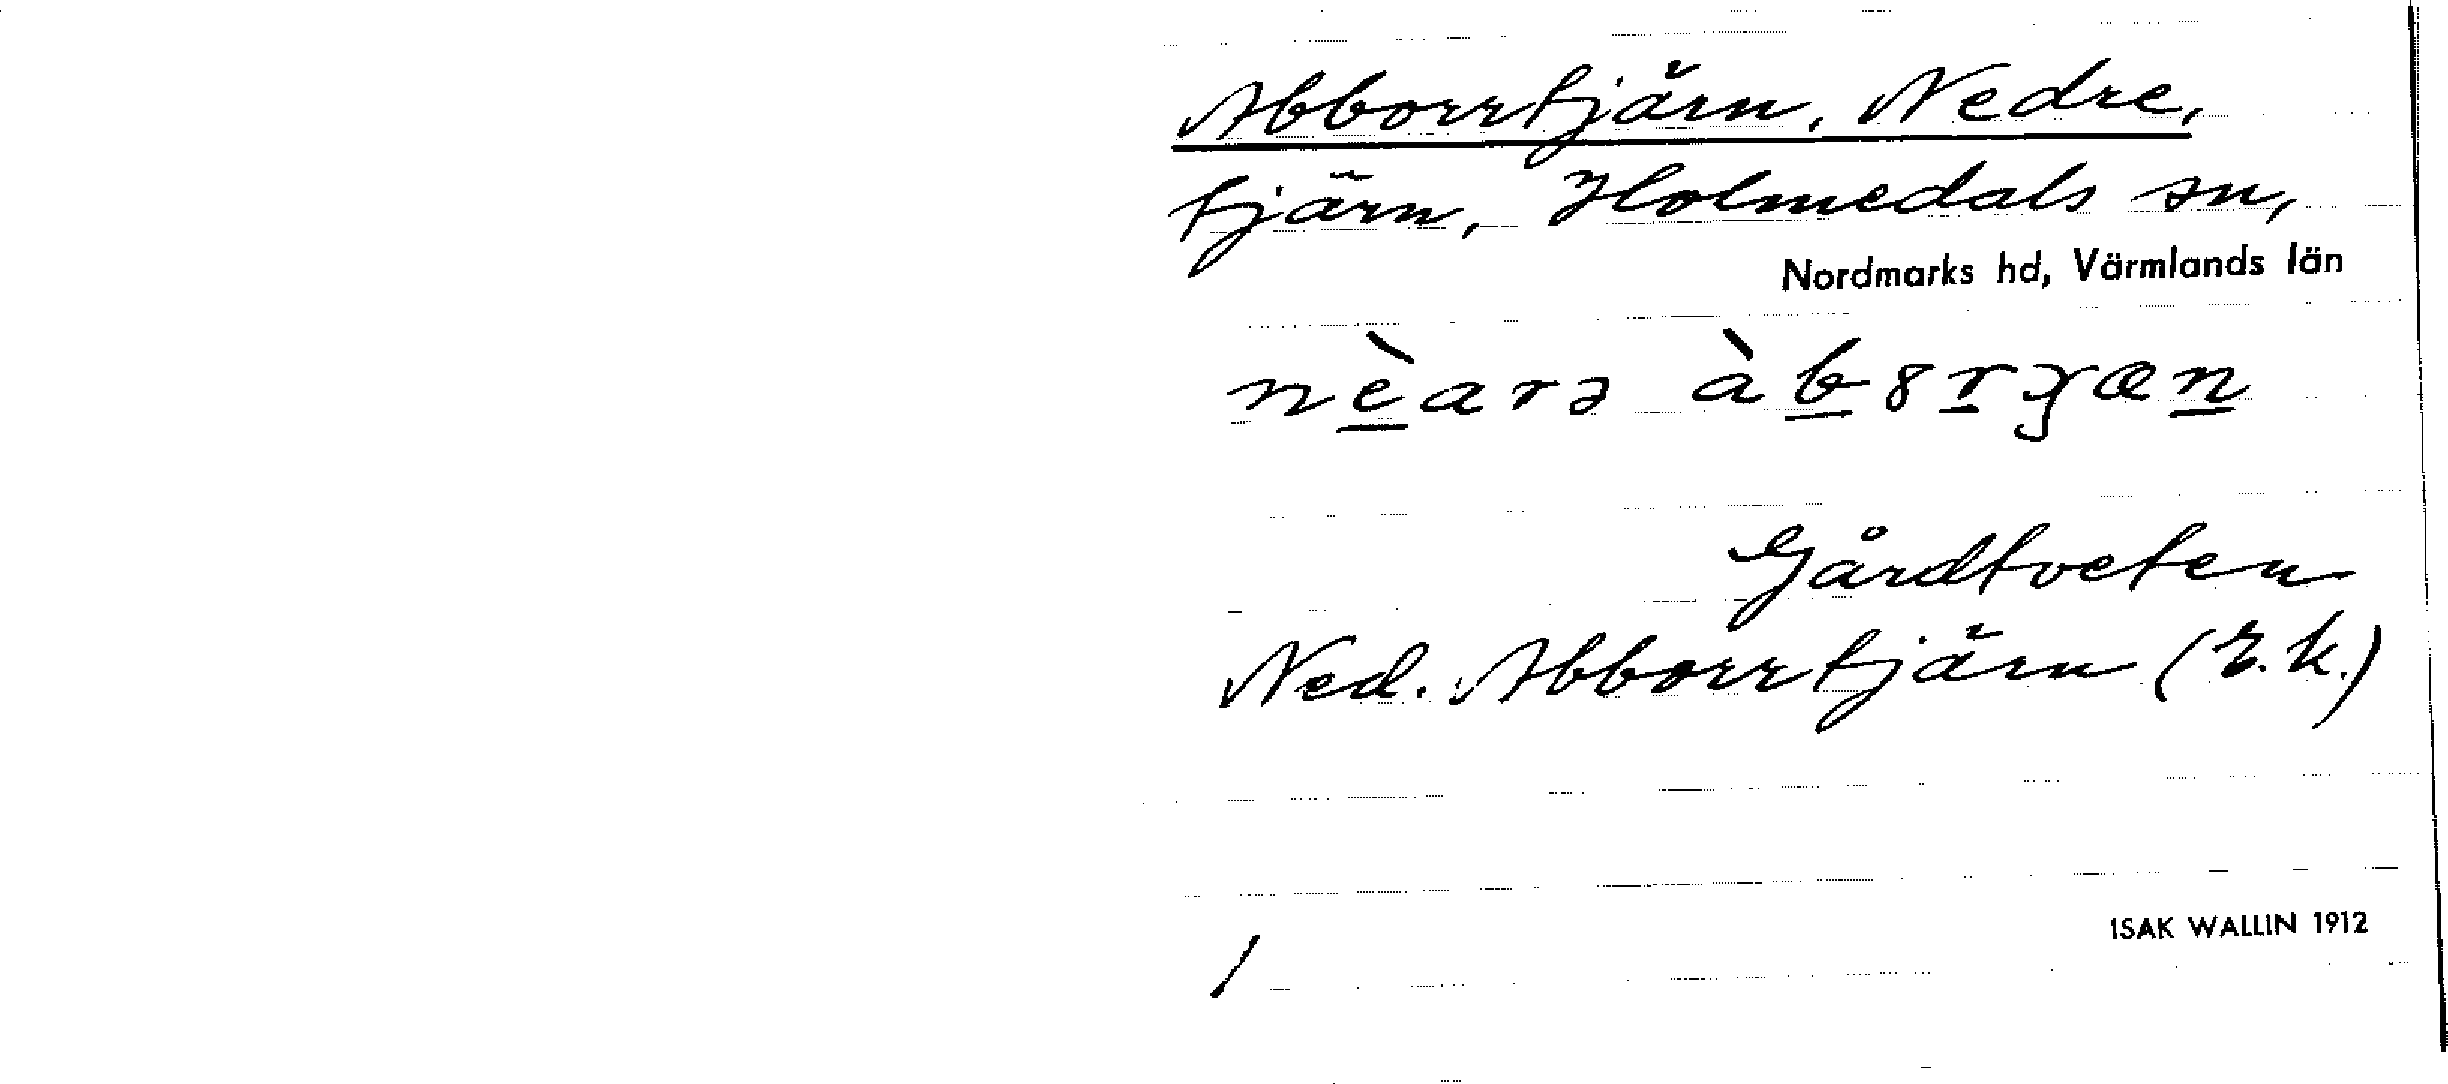 Abborrtjärn, Nedre,
tjärn, Holmedals sn,
Nordmarks hd, Värmlands län
Gårdtveten
Ned. Abborrtjärn (E.k.)
ISAK WALLIN 1912
1